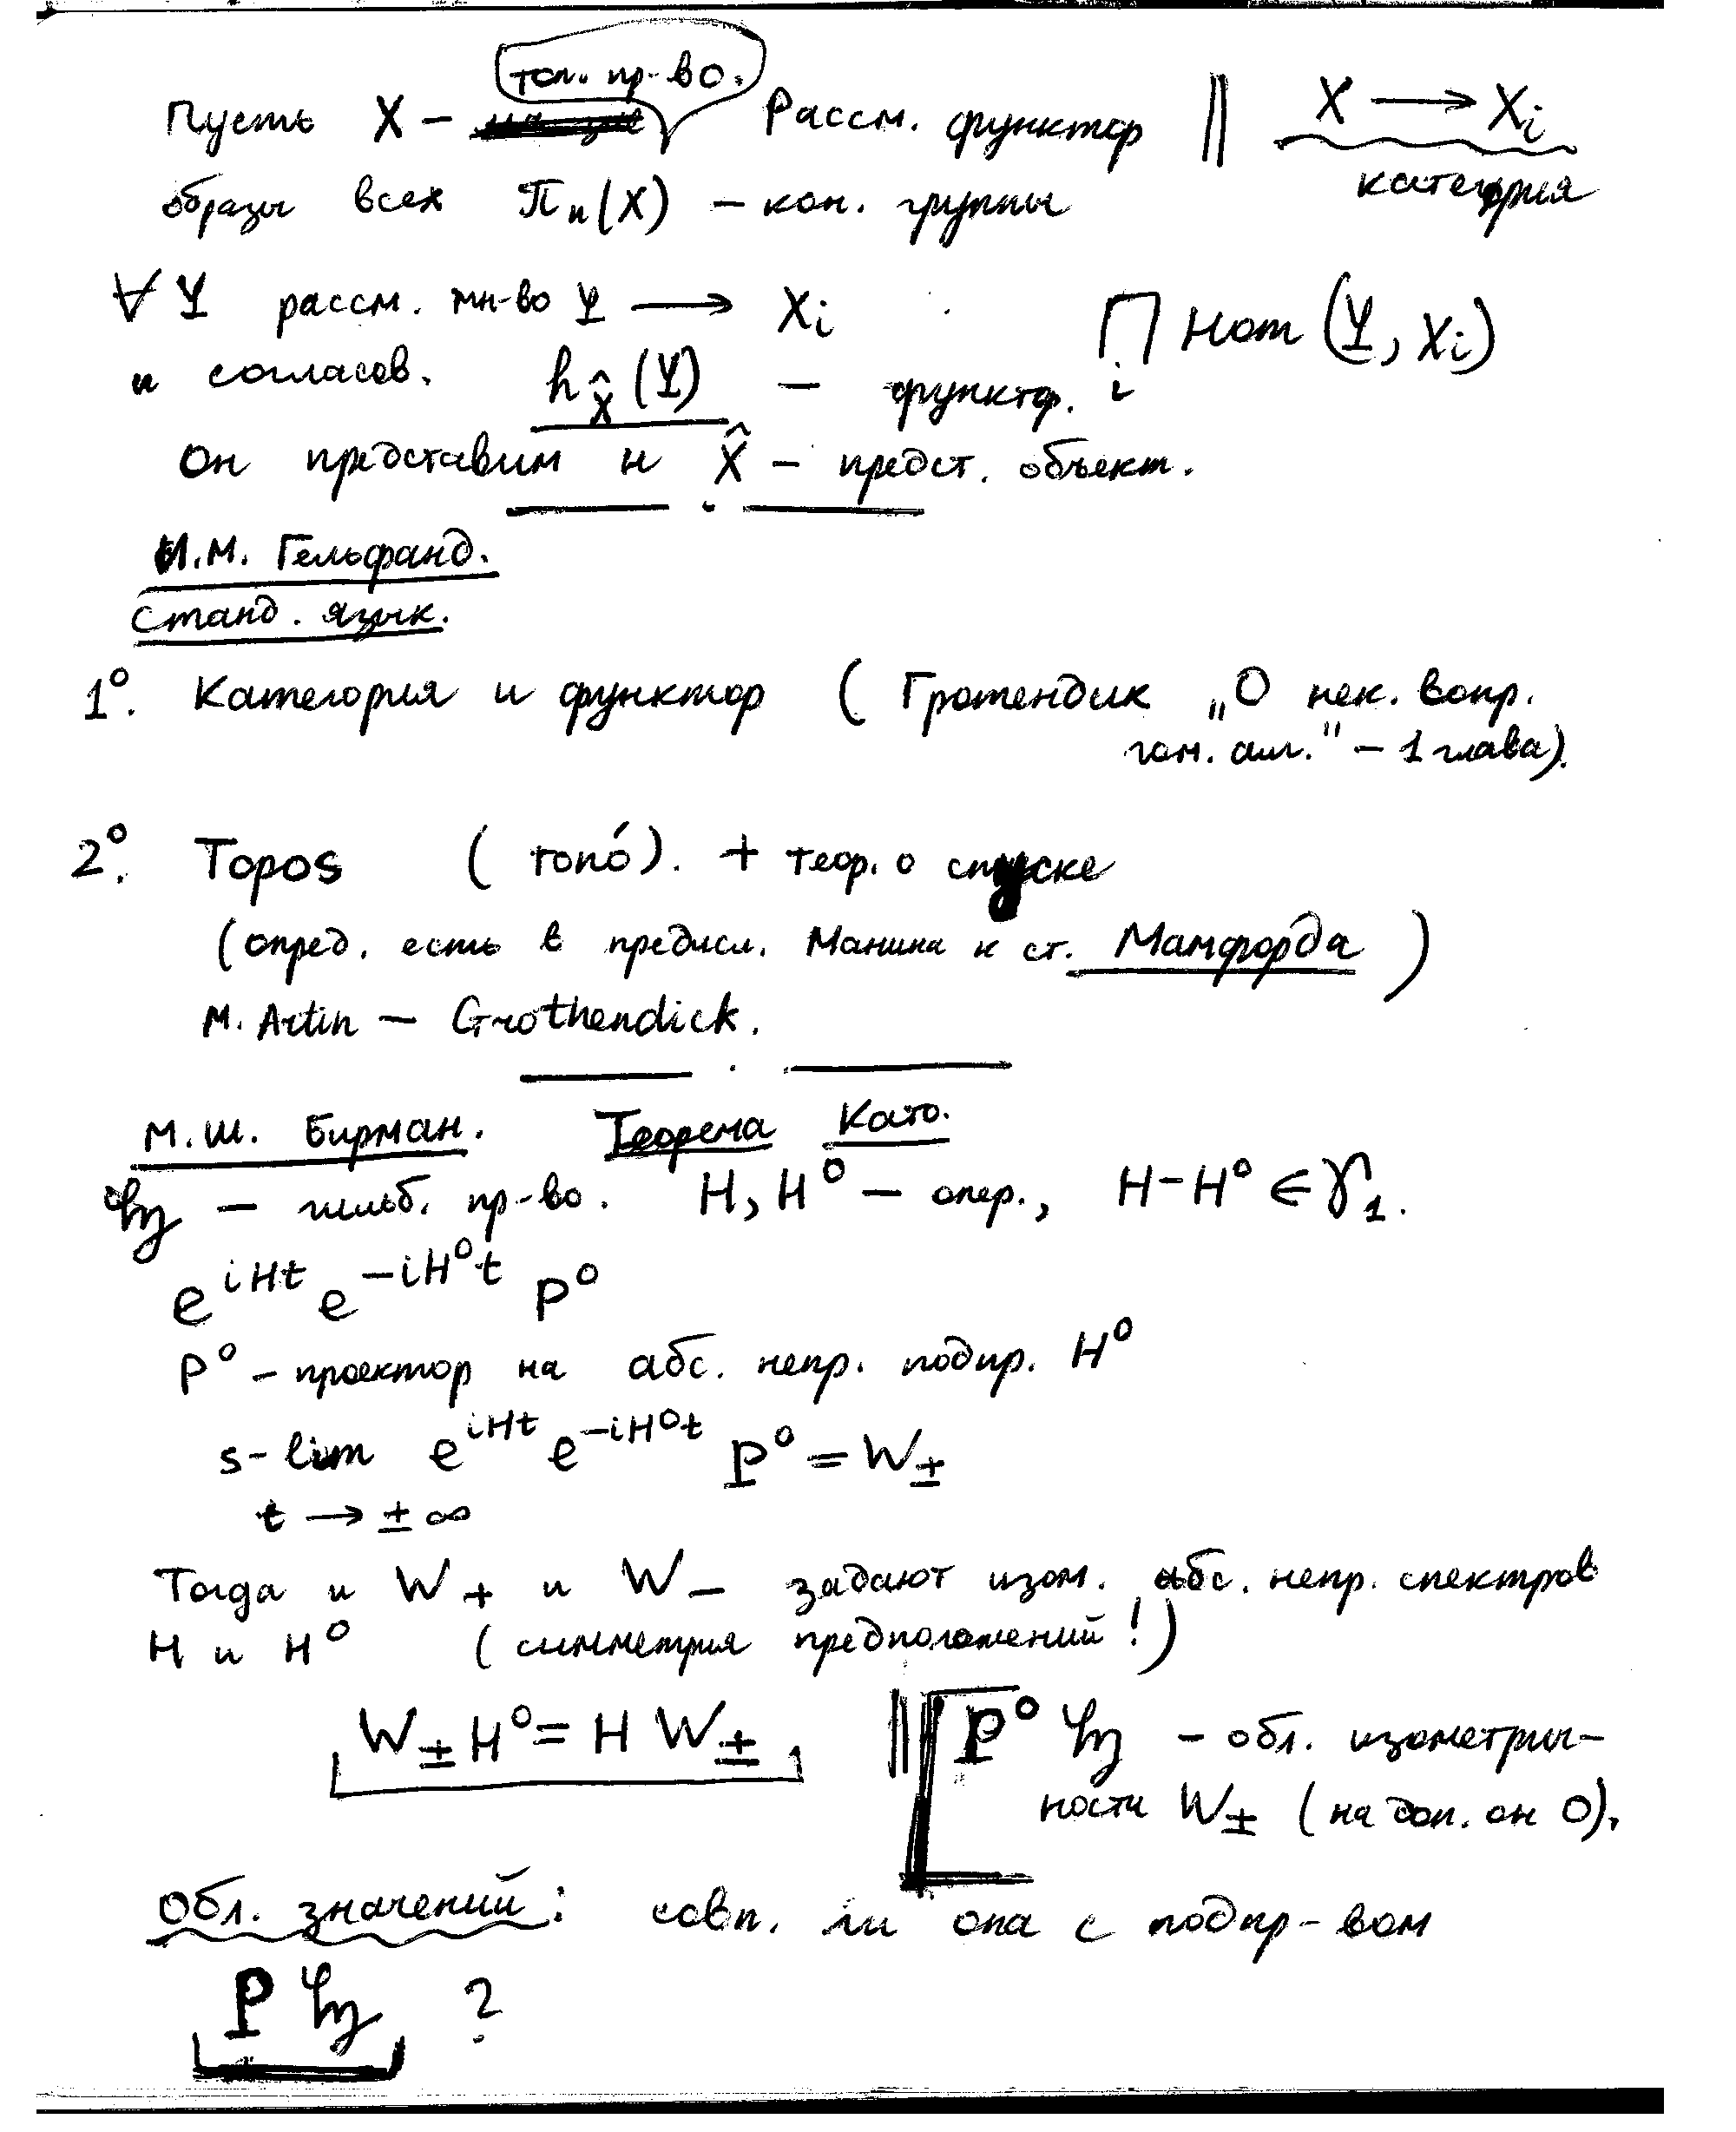 топ. пр-во.
Пусть X – Рассм. функтор || X ⟶ X_i
категория
образы всех π_n(X) – кон. группы
∀ Y рассм. мн-во Y ⟶ X_i
∏_i Hom (Y, X_i)
и согласов. h_X̂ (Y) – функтор.
Он представим и X̂ – предст. объект.
И.М. Гельфанд.
Станд. язык.
1°. Категория и функтор ( Гротендик „О нек. вопр.
гом. алг." – 1 глава).
2°. Topos ( топо́). + теор. о спуске
(опред. есть в предисл. Манина к ст. Мамфорда )
M. Artin – Grothendick.
М.Ш. Бирман. Теорема Като.
ℌ – гильб. пр-во. H, H° – опер., H–H° ∈ γ_1.
e^{iHt} e^{–iH°t} P°
P° – проектор на абс. непр. подпр. H°
s-lim e^{iHt} e^{–iH°t} P° = W_±
t → ± ∞
Тогда и W_+ и W_– задают изом. абс. непр. спектров
H и H° ( симметрия предположений! )
W_± H° = H W_± || P° ℌ – обл. изометрич-
ности W_± ( на доп. он 0).
Обл. значений: совп. ли она с подпр-вом
P ℌ ?